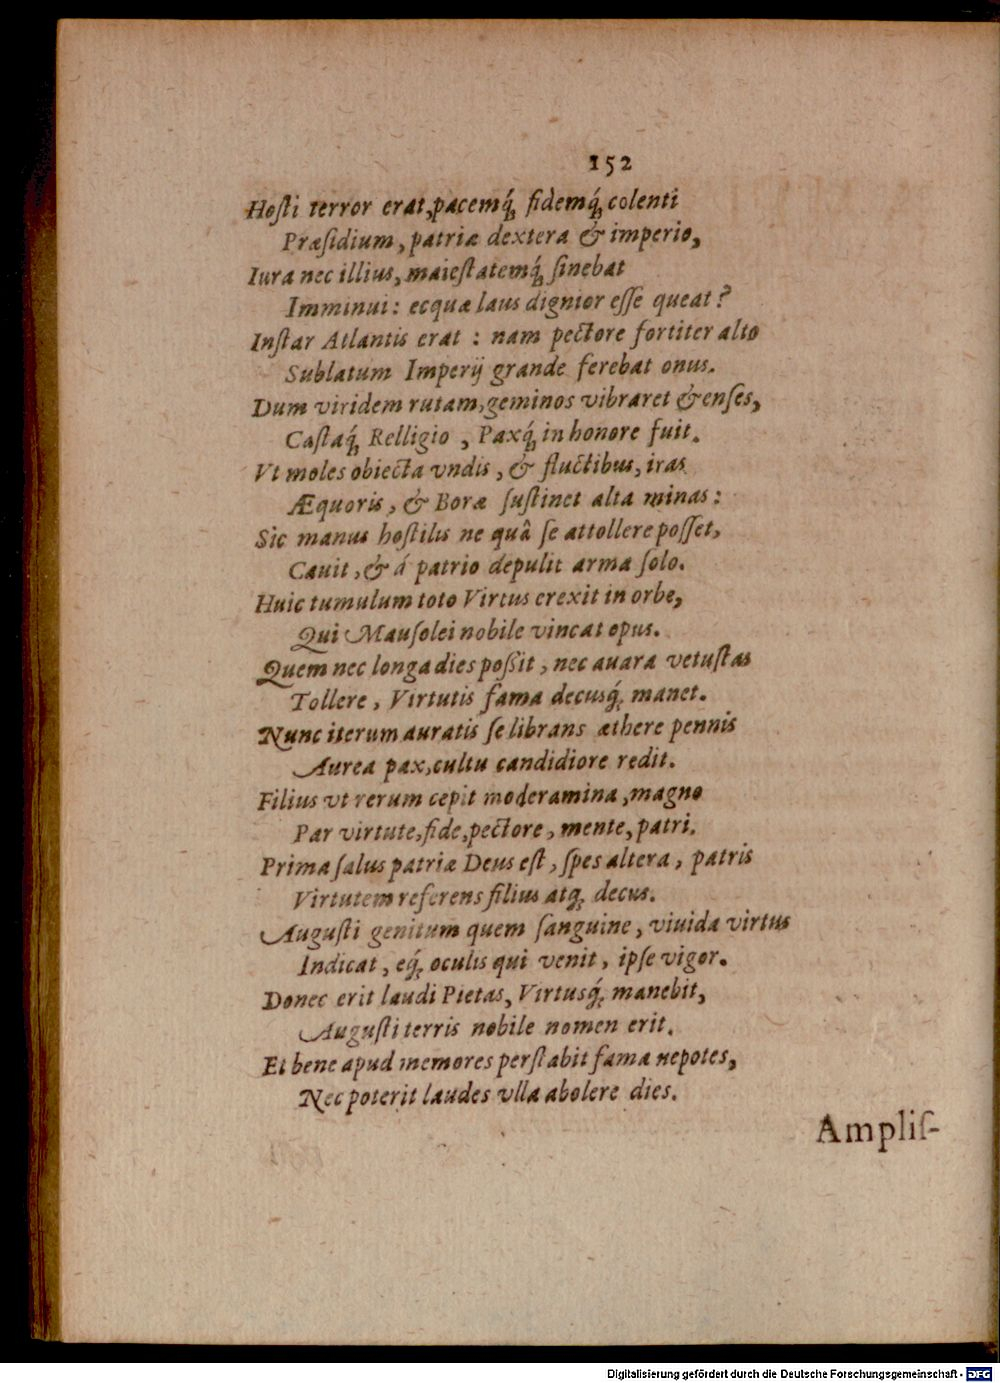 152
Hoſti terror erat, pacemq́; fidemq́; colenti
Præſidium, patriæ dextera & imperio,
Iura nec illius, maieſtatemq́; ſinebat
Imminui: ecquæ laus dignior eſſe queat?
Inſtar Atlantis erat : nam pectore fortiter alto
Sublatum Imperij grande ferebat onus.
Dum viridem rutam, geminos vibraret & enſes,
Caſtaq́; Relligio, Paxq́; in honore fuit.
Vt moles obiecta vndis, & fluctibus, iras
Æquoris, & Boræ ſuſtinet alta minas:
Sic manus hoſtilis ne quâ ſe attollere poſſet,
Cauit, & á patrio depulit arma ſolo.
Huic tumulum toto Virtus erexit in orbe,
Qui Mauſolei nobile vincat opus.
Quem nec longa dies poſſit, nec auara vetuſtas
Tollere, Virtutis fama decusq́; manet.
Nunc iterum auratis ſe librans æthere pennis
Aurea pax, cultu candidiore redit.
Filius vt rerum cepit moderamina, magno
Par virtute, fide, pectore, mente, patri.
Prima ſalus patriæ Deus eſt, ſpes altera, patris
Virtutem referens filius atq; decus.
Auguſti genitum quem ſanguine, viuida virtus
Indicat, eq́; oculis qui venit, ipſe vigor.
Donec erit laudi Pietas, Virtusq́; manebit,
Auguſti terris nobile nomen erit.
Et bene apud memores perſtabit fama nepotes,
Nec poterit laudes vlla abolere dies.
Ampliſ-
Digitalisierung gefördert durch die Deutsche Forschungsgemeinschaft - DFG